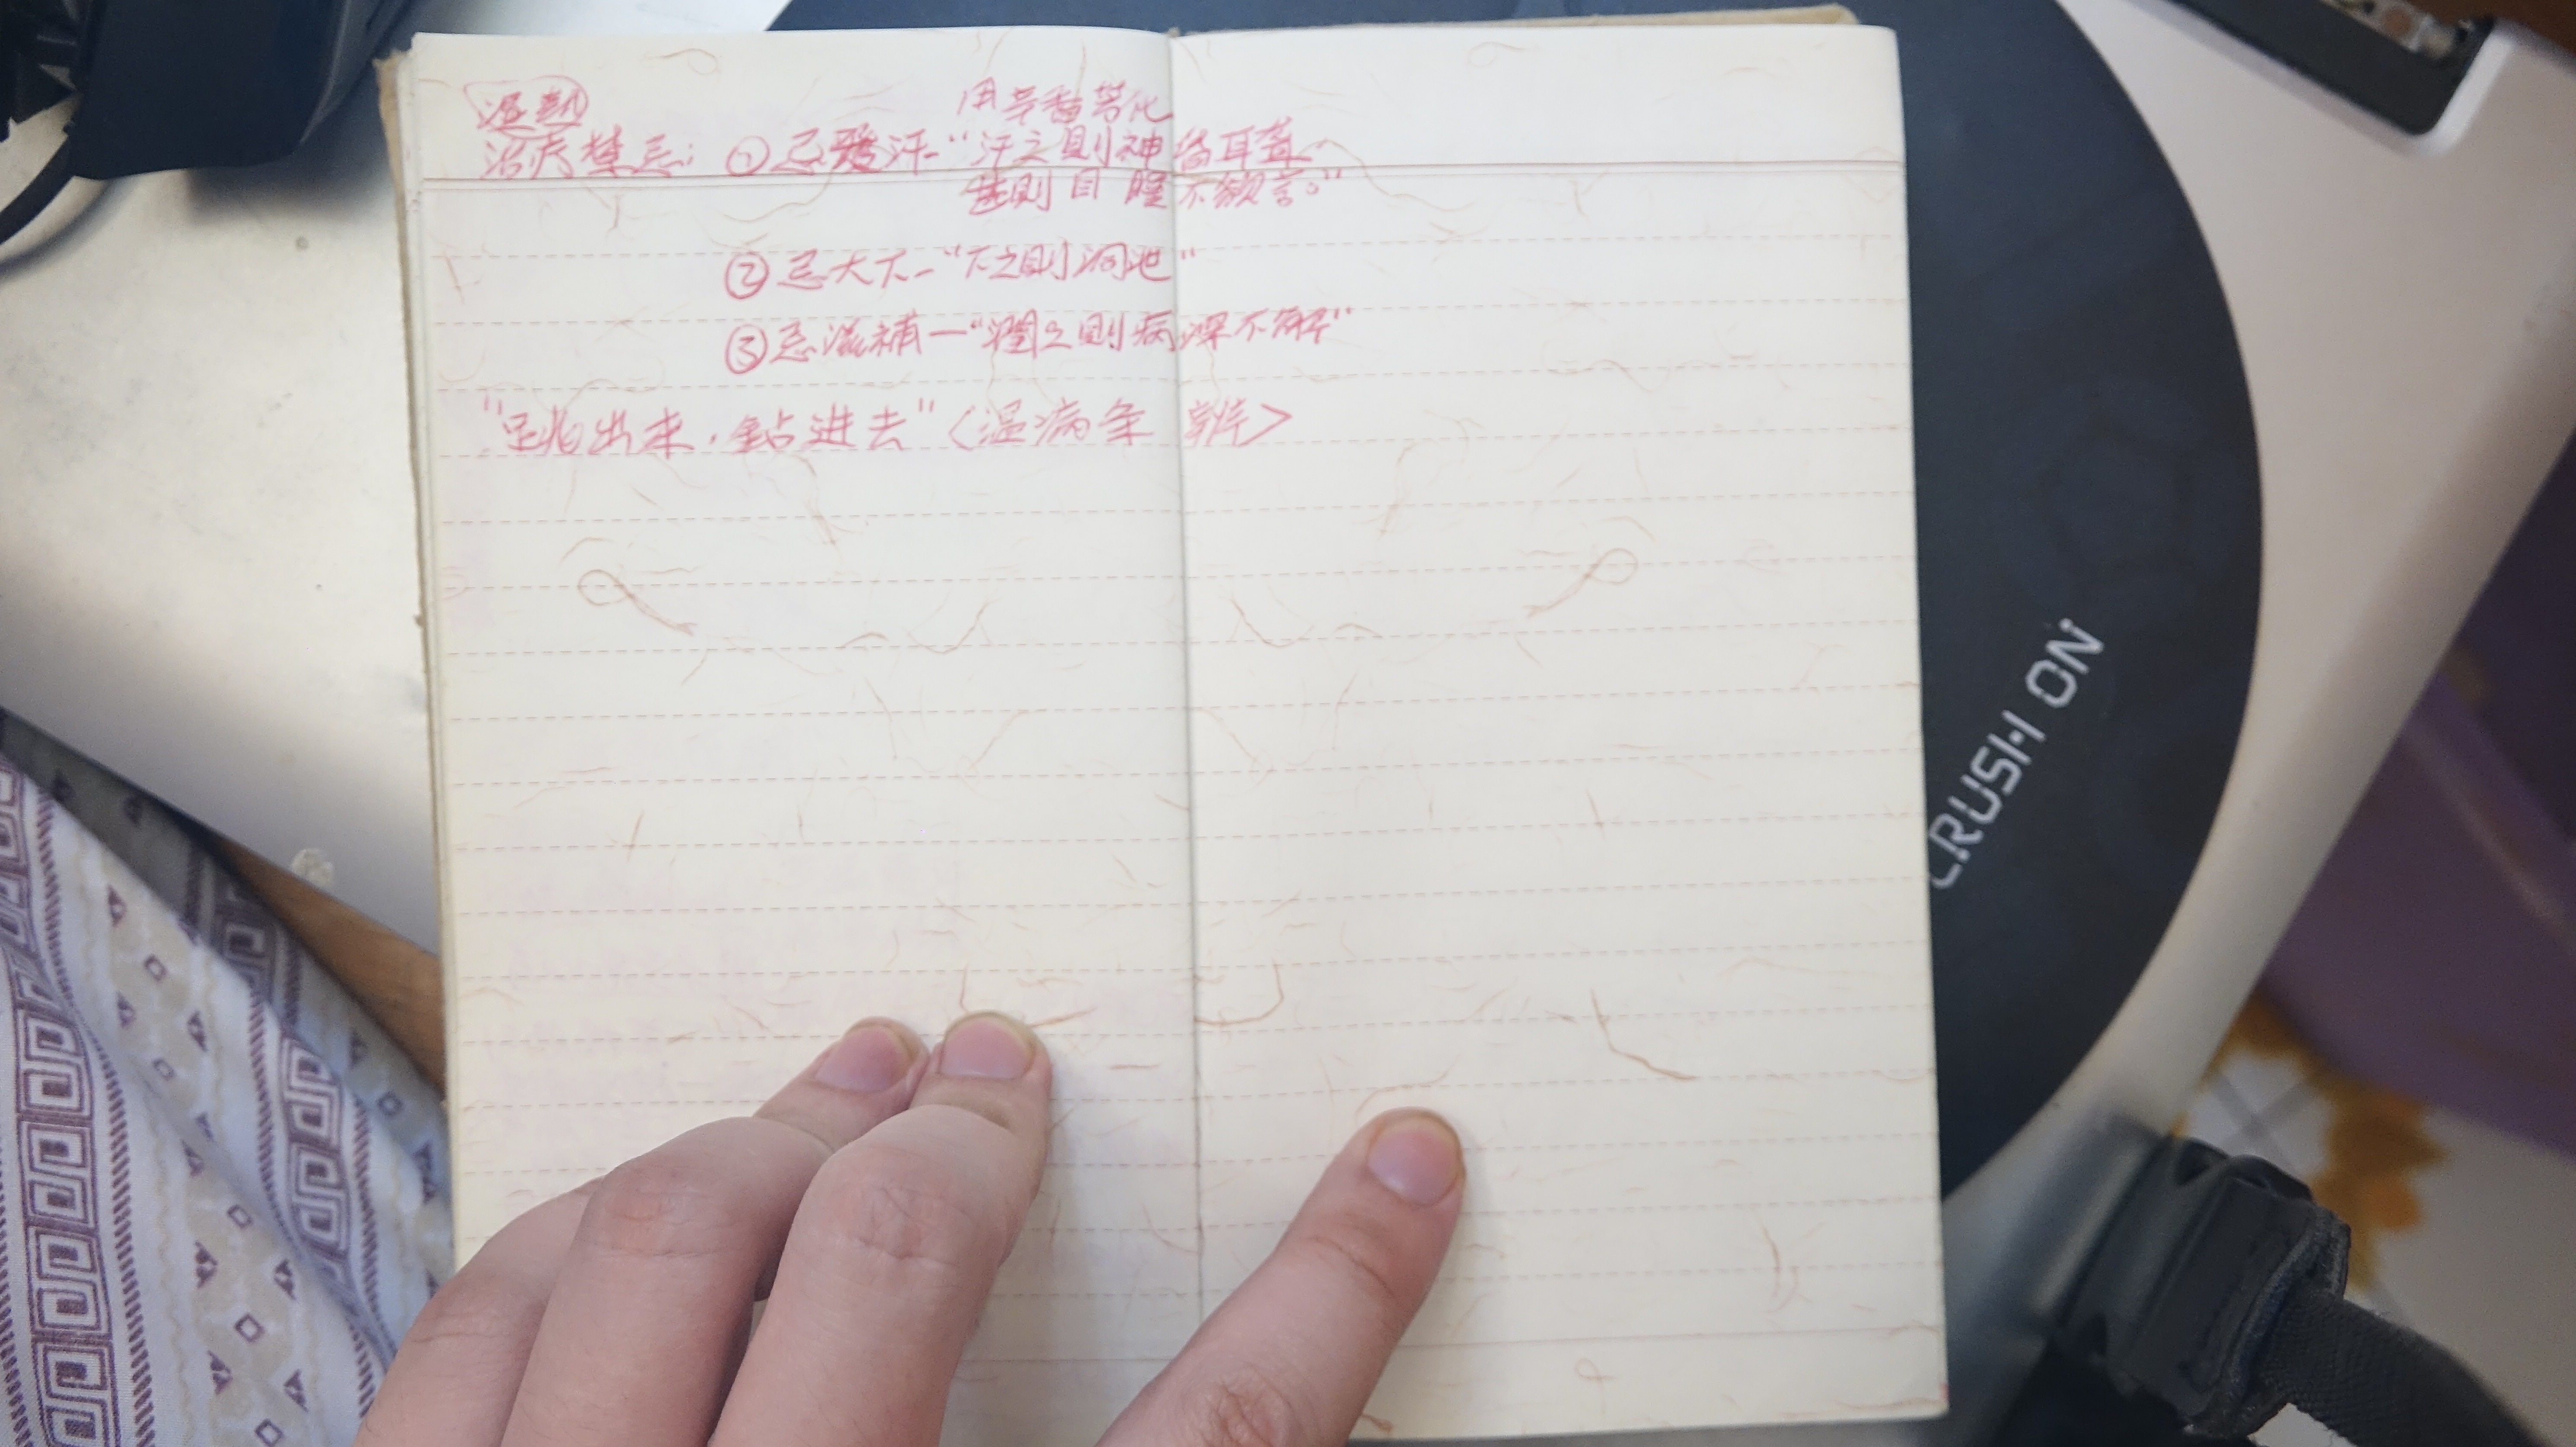 湿热
用芳香苦化
治疗禁忌: ①忌发汗-“汗之则神昏耳聋
甚则目瞑不欲言。”
②忌大下-“下之则洞泄”
③忌滋补—“润之则病深不解”
“跳出来,钻进去”〈温病条辨〉
CRUSH ON